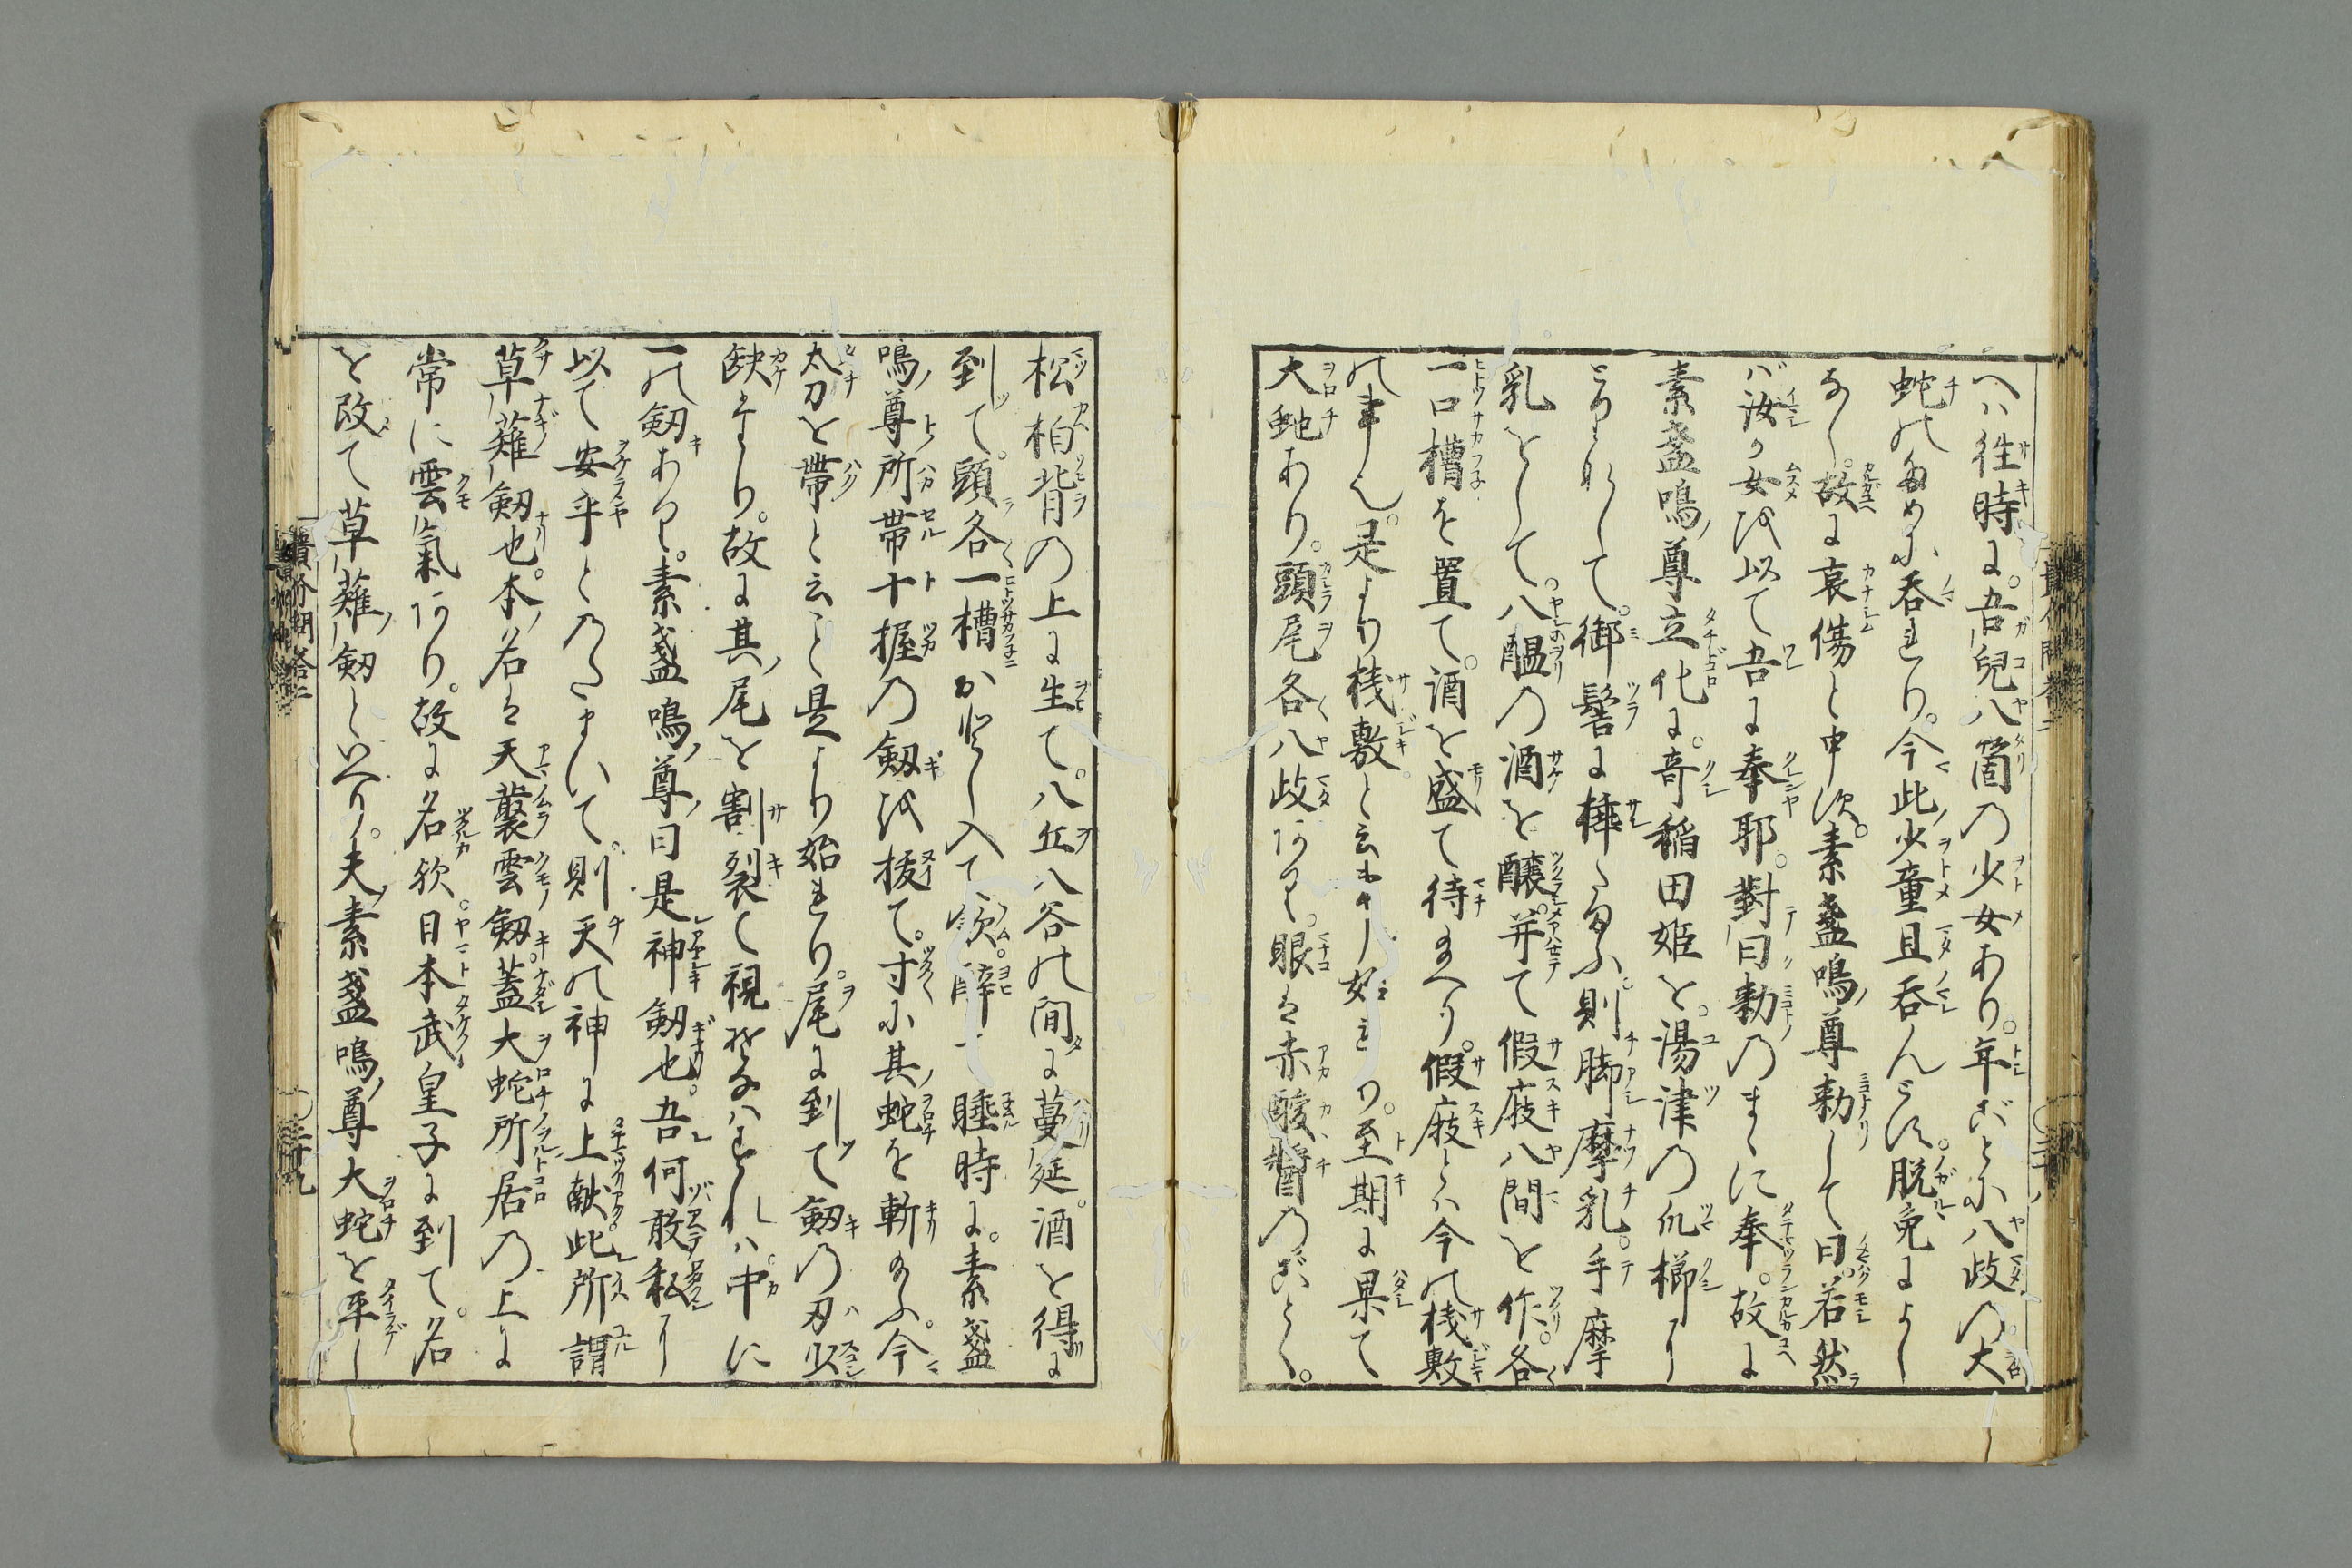 へハ往時に。吾兒八箇の少女あり。年ごとに八歧の大
蛇のために呑れり。今此少童且呑んとす。脱免によし
なし。故に哀傷と申す。素盞嗚尊勅して曰。若然
バ汝が女を以て吾に奉耶。對曰勅のまゝに奉。故に
素盞嗚尊立化に。奇稲田姫を。湯津の爪櫛に
とりなして。御髻に挿たまふ。則脚摩乳。手摩
乳をして。八醞の酒を醸。并て假庪八間を作。各
一口槽を置て。酒を盛て待玉へり。假庪とハ今の桟敷
の事也。是より桟敷と云事始れり。至期に果て
大虵あり。頭尾各八歧あり。眼は赤酸醤のごとく。
松柏背の上に生て。八丘八谷の間に蔓延。酒を得に
到て。頭各一槽かたむし入て飲。醉て睡時に。素盞
嗚尊所帯十握の劔を抜て。寸に其蛇を斬玉ふ。今
太刀を帯と云こと是より始れり。尾に到て劔の刃少
缺たり。故に其尾を割裂て視そなハすれハ中に
一の劔あり。素盞嗚尊曰是神劔也。吾何敢私に
以て安乎とのたまいて。則天の神に上献。此所謂
草薙劔也。本名は天藂雲劔。蓋大蛇所居の上に
常に雲氣あり。故に名欤。日本武皇子に到て。名
を改て草薙劔といへり。夫素盞嗚尊大蛇を平し